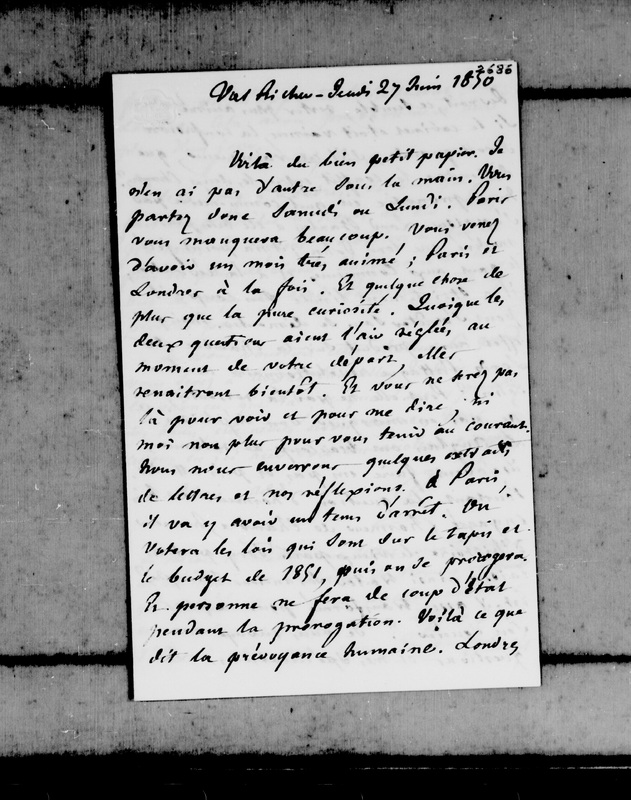 2686
Val Richer - Jeudi 27 Juin 1850
Voilà du bien petit papier. Je
n'en ai pas d'autre sous la main. Vous
partez donc Samedi ou Lundi. Paris
vous manquera beaucoup. Vous venez
d'avoir un mois très animé ; Paris et
Londres à la fois. Et quelque chose de
plus que la pure curiosité. Quoique les
deux questions aient l'air réglées au
moment de votre départ, elles
renaitront bientôt. Et vous ne serez pas
là pour voir et pour me dire, ni
moi non plus pour vous tenir au courant.
Nous nous enverrons quelques extraits
de lettres et nos réflexions. à Paris,
il va y avoir un tems d'arrêt. On
votera les lois qui sont sur le tapis et
le budget de 1851, puis on se prorogera.
Et personne ne fera de coup d'Etat
pendant la prorogation. Voilà ce que
dit la prévoyance humaine. Londres